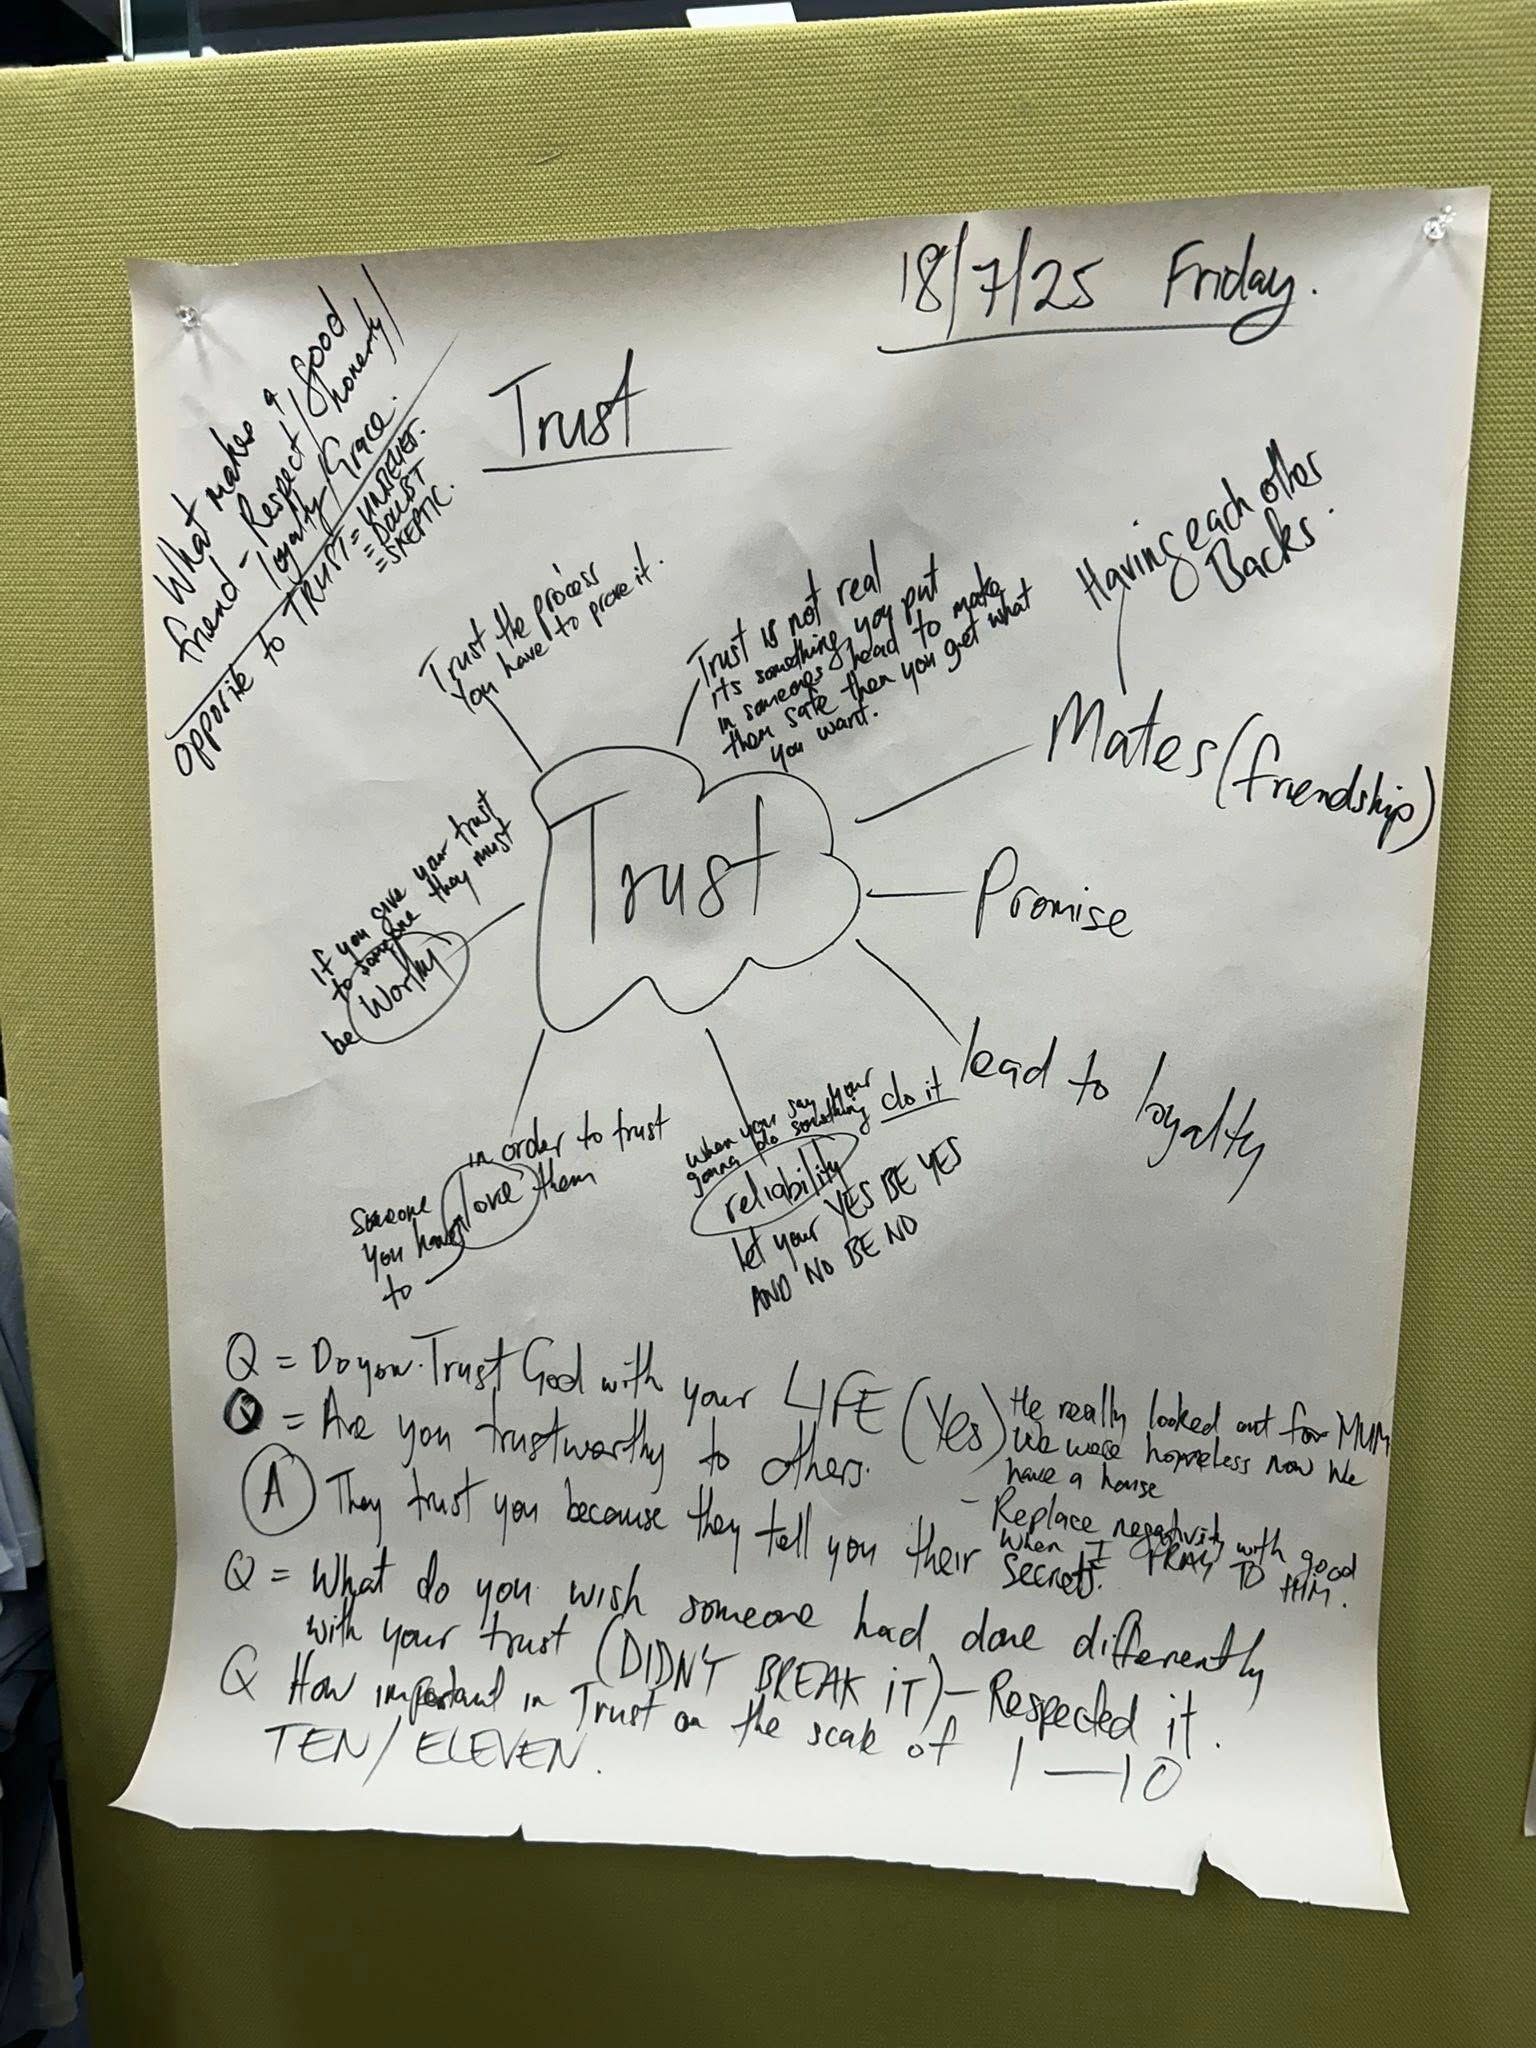 18/7/25 Friday.
Trust
What makes a good
friend - Respect / honesty /
loyalty / Grace.
opposite to TRUST = UNBELIEF.
= DOUBT
= SKEPTIC.
Trust the process
You have to prove it.
Trust is not real
its something you put
in someones head to make
them safe then you get what
you want.
Having each other
Backs.
Mates (friendship)
Trust
Promise
lead to loyalty
if you give your trust
to someone they must
be Worthy
in order to trust
Someone
you have love them
to
when you say your
gonna do something do it
reliability
let your YES BE YES
AND NO BE NO
Q = Do you Trust God with your LIFE (Yes) He really looked out for MUM
We were hopeless now we
have a house
- Replace negativity with good
when I PRAY TO HIM.
Q = Are you trustworthy to others.
A They trust you because they tell you their secrets.
Q = What do you wish someone had done differently
with your trust (DIDN'T BREAK iT) - Respected it.
Q How important in Trust on the scale of 1 — 10
TEN / ELEVEN.